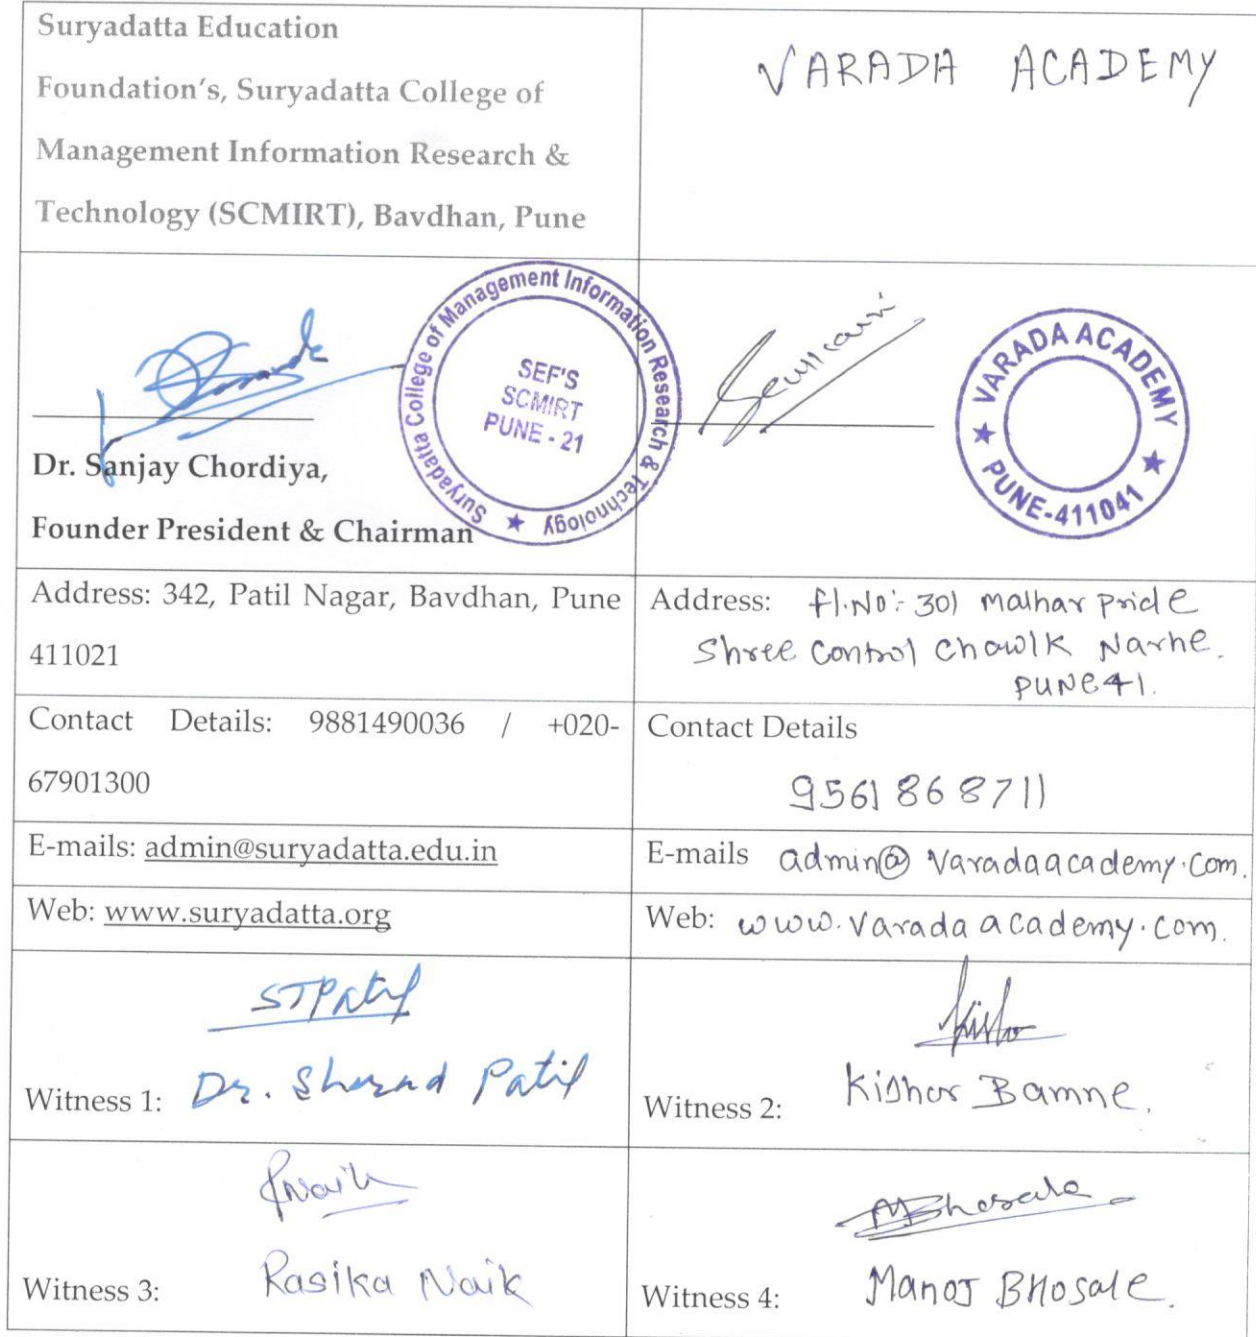 Suryadatta Education
Foundation's, Suryadatta College of
Management Information Research &
Technology (SCMIRT), Bavdhan, Pune
VARADA ACADEMY
Suryadatta College of Management Information Research & Technology
SEF'S
SCMIRT
PUNE - 21
VARADA ACADEMY
PUNE-411041
Dr. Sanjay Chordiya,
Founder President & Chairman
Address: 342, Patil Nagar, Bavdhan, Pune
411021
Address: Fl.No:- 301 malhar pride
Shree Control Chawlk Narhe.
PUNE 41.
Contact Details: 9881490036 / +020-
67901300
Contact Details
9561868711
E-mails: admin@suryadatta.edu.in
E-mails admin@varadaacademy.com.
Web: www.suryadatta.org
Web: www.varadaacademy.com.
STPatil
Witness 1: Dr. Sharad Patil
Witness 2: Kishor Bamne.
Witness 3: Rasika Naik
MBhosale
Witness 4: Manoj Bhosale.